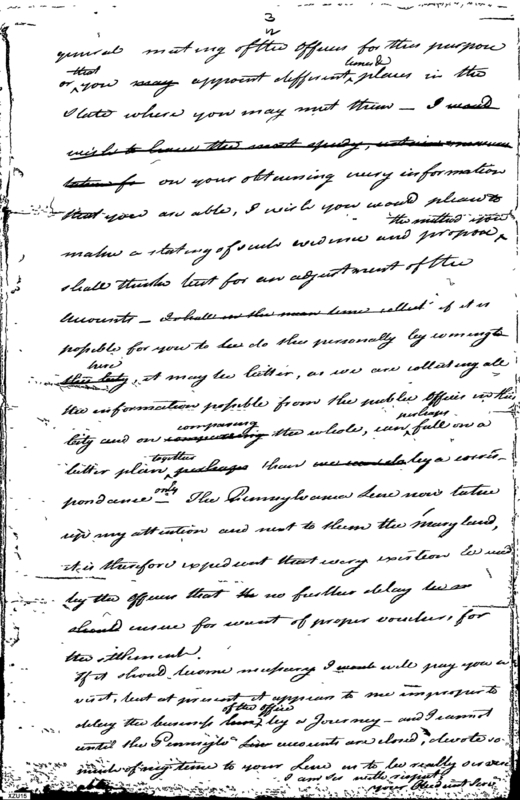 3
general meeting of the Officers for this purpose
or that you may appoint different timed places in the
State where you may meet them — I would
wish to have the most speedy,
taken for on your obtaining every information
that you are able, I wish you would please to
make a stating of such evidence and propose, the method you
shall think best for an adjustment of the
Accounts — I shall in the mean time collect if it is
possible for you to be do this personally by coming to
this City, here it may be better, as we are collecting all
the information possible from the public Offices in this
City and on comparing the whole, can perhaps fall on a
better plan, together perhaps than we can do by a corres-
pondance only — The Pennsylvania Line now takes
up my attention and next to them the Maryland,
it is therefore expedient that every exertion be used
by the Officers that no further delay be
should ensue for want of proper vouchers, for
the settlement.
If it should become necessary I would will pay you a
visit, but at present it appears to me improper to
delay the business here, of the office by a Journey — and I cannot
until the Pennsylv<sup>a</sup> Line accounts are closed, devote so
much of my time to your Line as to be really
I am Sir with respect
your Obedient Serv
XZU16